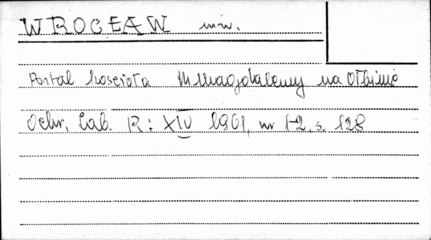 WROCŁAW m.w.
Portal kościoła M. Magdaleny na Ołbinie
Ochr. Zab. R: XIV 1961, nr 1-2, s. 128